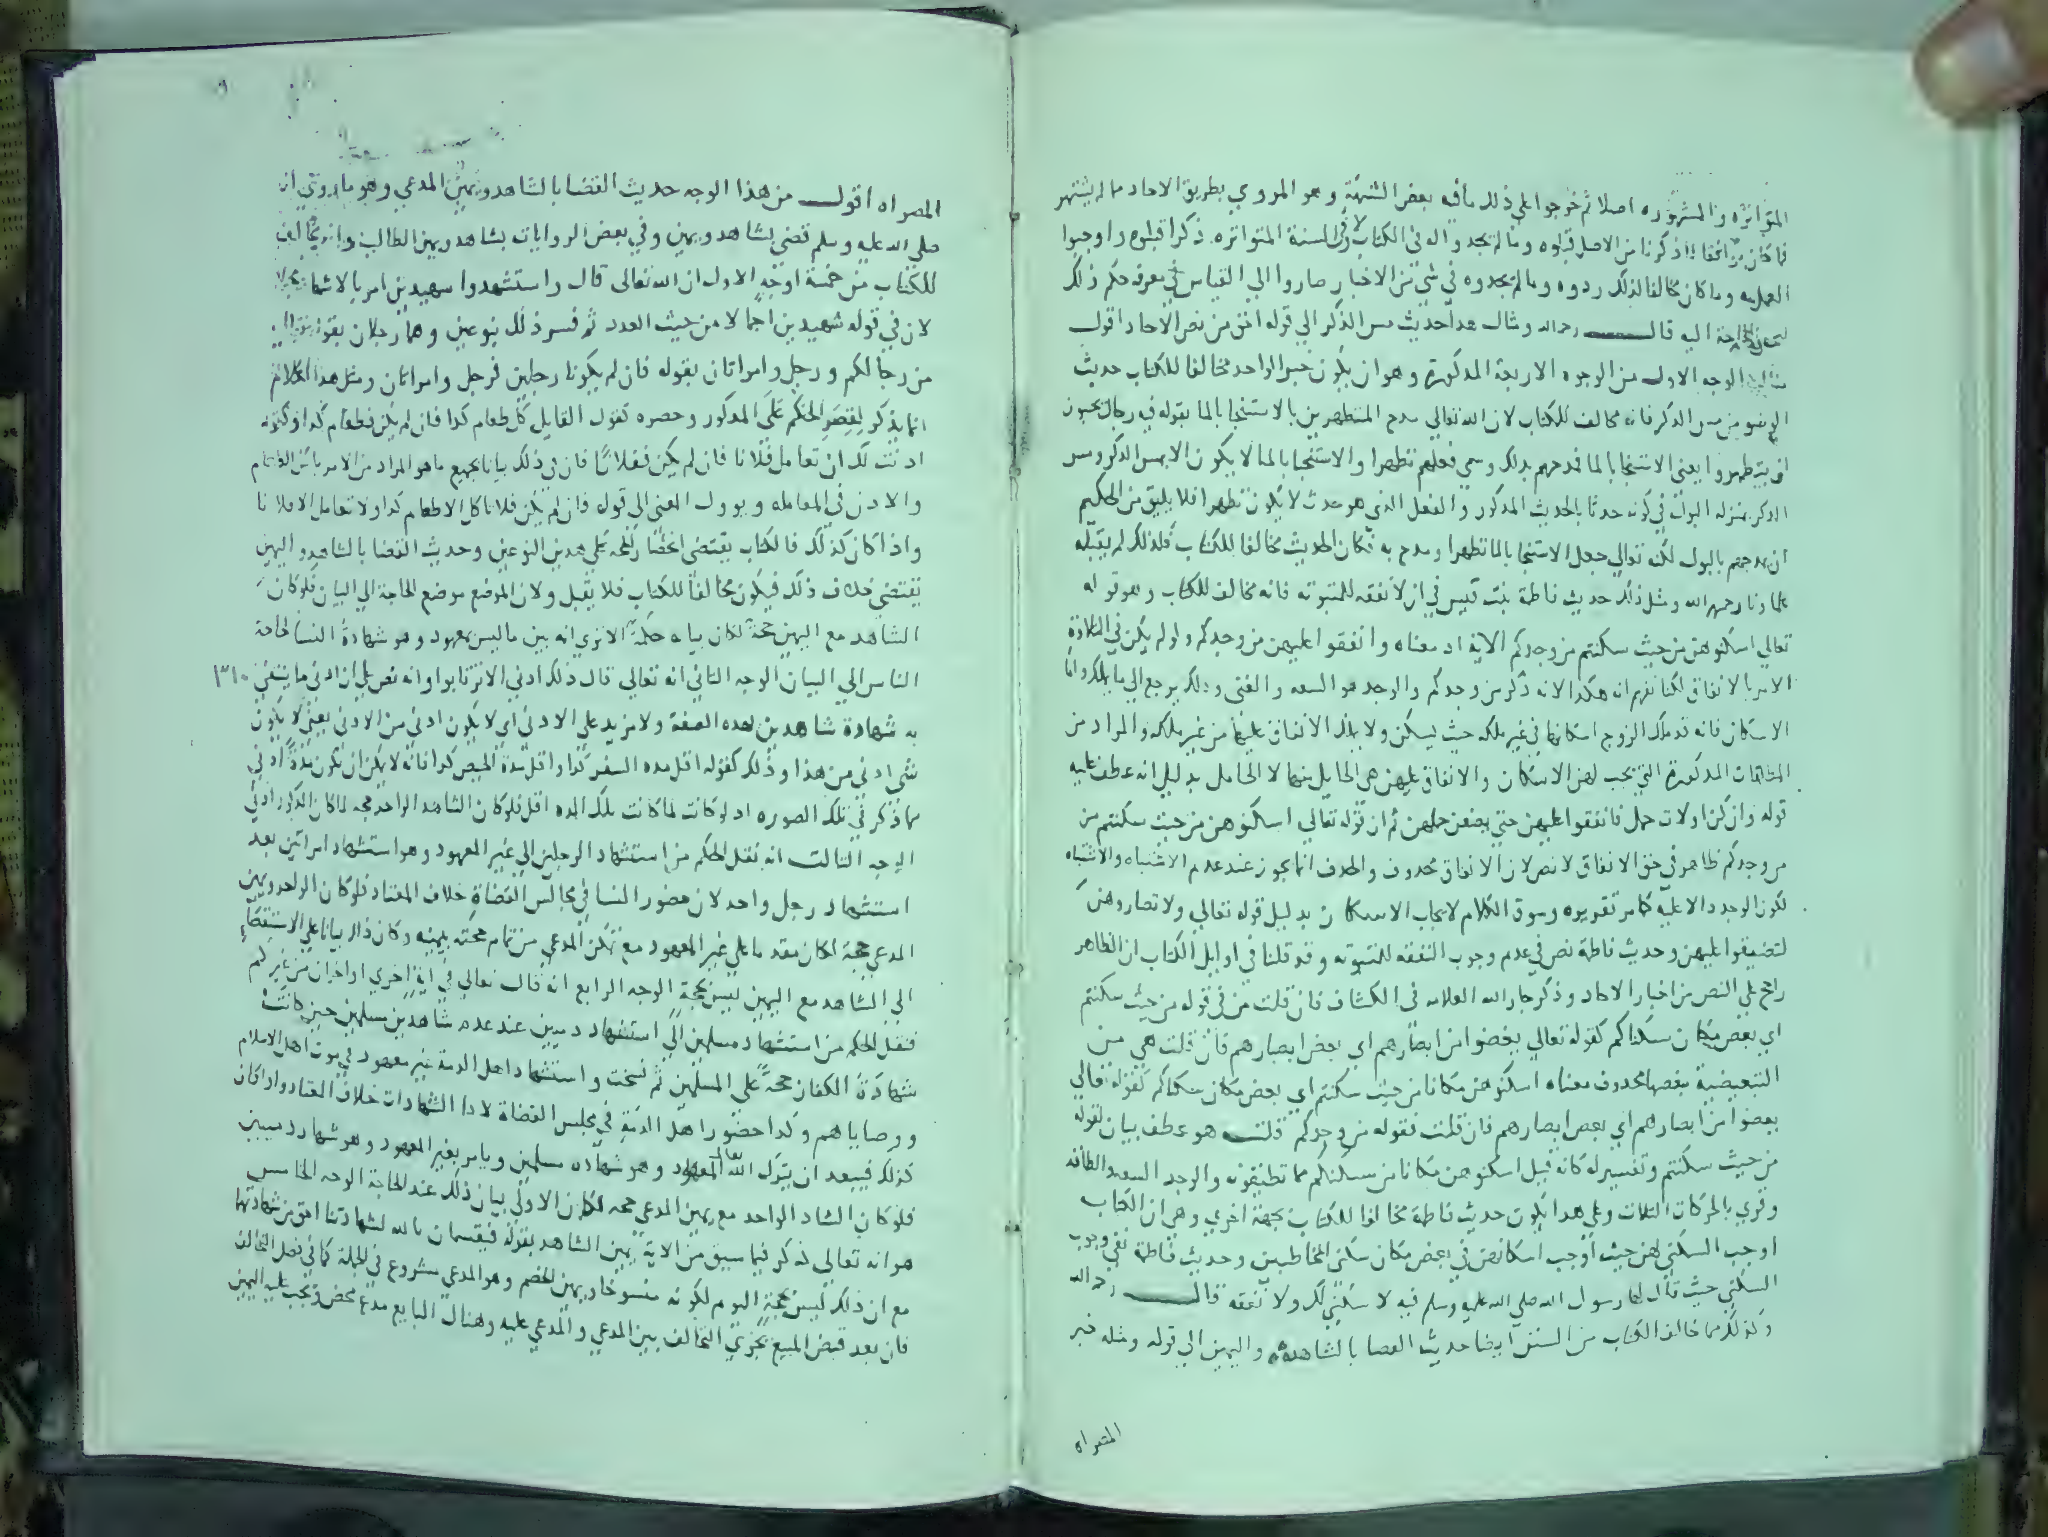 المتواتره والمشهوره اصلا ثم خرجوا على ذلك ما فيه بعض الشبهة وهو المروي بطريق الاحاد مما لم يشتهر
فما كان موافقا لما ذكرنا من الاصل قبلوه وما لم يجدوا له في الكتاب ولا في السنة المتواتره ذكرا قبلوه واوجبوا
العمل به وما كان مخالفا لذلك ردوه وما لم يجدوه في شي من الاخبار صاروا الي القياس في معرفه حكم ذلك
الحاجة اليه قال رحمه الله ومثال هذا حديث مس الذكر الي قوله احق من نص الاحاد اقول
مثال الوجه الاول من الوجوه الاربعة المذكورة وهو ان يكون خبر الواحد مخالفا للكتاب حديث
الوضو من مس الذكر فانه مخالف للكتاب لان الله تعالي مدح المتطهرين بالاستنجا بالما بقوله فيه رجال يحبون
ان يتطهروا يعني الاستنجا بالما فمدحهم بذلك وسمي فعلهم تطهرا والاستنجا بالما لا يكون الا بمس الذكر ومس
الذكر بمنزله البول في كونه حدثا بالحديث المذكور والفعل الذي هو حدث لا يكون تطهرا فلا يليق من الحكيم
ان يمدحهم بالبول لكنه تعالي جعل الاستنجا بالما تطهرا ومدح به فكان الحديث مخالفا للكتاب فلذلك لم يقبله
علماونا رحمهم الله ومثل ذلك حديث فاطمة بنت قيس في ان لا نفقه للمبتوته فانه مخالف للكتاب وهو قوله
تعالي اسكنوهن من حيث سكنتم من وجدكم الايه اد معناه وانفقوا عليهن من وجدكم ولو لم يكن في التلاوة
الامر بالانفاق لكنا نفهم انه هكذا لانه ذكر من وجدكم والوجد هو السعه والغني وذلك يرجع الي ما يملك واما
الاسكان فانه قد يملك الزوج اسكانها في غير ملكه حيث يسكن ولا يملك الانفاق عليها من غير ملكه والمراد من
المطلقات المذكورة التي يجب لهن الاسكان والانفاق عليهن هي الحايل منها لا الحامل بدليل انه عطف عليه
قوله وان كن اولات حمل فانفقوا عليهن حتي يضعن حملهن ثم ان قوله تعالي اسكنوهن من حيث سكنتم من
من وجدكم ظاهر في حق الانفاق لا نص لان الانفاق محذوف والحذف انما يجوز عند عدم الاشتباه والاشتباه
لكون الوجد دالا عليه كما مر تقريره وسوق الكلام لايجاب الاسكان بدليل قوله تعالي ولا تضاروهن
لتضيقوا عليهن وحديث فاطمة نص في عدم وجوب النفقه للمبتوته وقد قلنا في اوايل الكتاب ان الظاهر
راجح على النص من اخبار الاحاد وذكر جار الله العلامه في الكشاف فان قلت من في قوله من حيث سكنتم
اي بعض مكان سكناكم كقوله تعالي يغضوا من ابصارهم اي بعض ابصارهم فان قلت هي من
التبعيضية مبعضها محذوف معناه اسكنوهن مكانا من حيث سكنتم اي بعض مكان سكناكم كقوله تعالي
يغضوا من ابصارهم اي بعض ابصارهم فان قلت فقوله من وجدكم قلت هو عطف بيان لقوله
من حيث سكنتم وتفسير له كانه قيل اسكنوهن مكانا من مسكنكم مما تطيقونه والوجد السعه والطاقه
وقري بالحركات الثلاث وعلي هذا يكون حديث فاطمة مخالفا للكتاب بجهة اخري وهي ان الكتاب
اوجب السكني لهن حيث اوجب اسكانهن في بعض مكان سكني المخاطبين وحديث فاطمة نفي وجوب
السكني حيث قال لها رسول الله صلي الله عليه وسلم فيه لا سكني لك ولا نفقه قال رحمه الله
وكذلك مما خالف الكتاب من السنن ايضا حديث القضا بالشاهد واليمين الي قوله ومثله خبر
المصراه
المصراه اقول من هذا الوجه حديث القضا بالشاهد ويمين المدعي وهو ما روي ان
صلي الله عليه وسلم قضي بشاهد ويمين وفي بعض الروايات بشاهد ويمين الطالب وانه مخالف
للكتاب من خمسة اوجه الاول ان الله تعالى قال واستشهدوا شهيدين امر بالاشهاد مجملا
لان في قوله شهيدين اجمالا من حيث العدد ثم فسر ذلك بنوعين وهما رجلان بقوله
من رجالكم ورجل وامراتان بقوله فان لم يكونا رجلين فرجل وامراتان ومثل هذا الكلام
انما يذكر لقصر الحكم على المذكور وحصره كقول القايل كل طعام كذا فان لم يكن فطعام كذا وكقوله
اذنت لك ان تعامل فلانا فان لم يكن ففلانا فان في ذلك بيانا لجميع ما هو المراد من الامر باكل الطعام
والاذن في المعامله ويوول المعني الى قوله فان لم يكن فلانا كل الا طعام كذا ولا تعامل الا فلانا
واذا كان كذلك فالكتاب يقتضي انحصار الحجة علي هذين النوعين وحديث القضا بالشاهد واليمين
يقتضي خلاف ذلك فيكون مخالفا للكتاب فلا يقبل ولان الموضع موضع الحاجة الي البيان فلو كان
الشاهد مع اليمين حجة لكان بيانه حكمة الا تري انه بين ما ليس بمعهود وهو شهادة النسا لحاجة
الناس الي البيان الوجه الثاني انه تعالي قال ذلك ادني الا ترتابوا وانه نص علي ان ادني ما ينتفي
٣١٠
به شهادة شاهدين بهذه الصفة ولا مزيد علي الادني اي لا يكون ادني من الادني يعني لا يكون
شي ادني من هذا وذلك كقوله اقل مده السفر كذا واقل مدة الحيض كذا فانه لا يمكن ان تكون مدة ادني
مما ذكر في تلك الصوره اد لو كانت لما كانت تلك المده اقل فلو كان الشاهد الواحد حجه لما كان المذكور ادني
الوجه الثالث انه نقل الحكم من استشهاد الرجلين الي غير المعهود وهو استشهاد امراتين بعد
استشهاد رجل واحد لان حضور النسا في مجالس القضاة خلاف المعتاد فلو كان الواحد ويمين
المدعي حجة لكان مقدما علي غير المعهود مع تمكن المدعي من تمام حجته بيمينه وكان ذلك بيانا علي الاستقصا
الي الشاهد مع اليمين ليس بحجة الوجه الرابع انه قال تعالي في اية اخري او اخران من غيركم
فنقل الحكم من استشهاد مسلمين الي استشهاد ذميين عند عدم شاهدين مسلمين حين كانت
شهادة الكفار حجة علي المسلمين ثم نسخت واستشهاد اهل الذمة غير معهود في موت اهل الاسلام
ووصاياهم وكذا حضور اهل الذمة في مجلس القضاة لادا الشهادات خلاف المعتاد واذا كان
كذلك فيبعد ان يترك الله تعالى المعهود وهو شهاده مسلمين ويامر بغير المعهود وهو شهاده ذميين
فلو كان الشاد الواحد مع يمين المدعي حجه لكان الاولي بيان ذلك عند الحاجة الوجه الخامس
هو انه تعالي ذكر فيما سبق من الاية يمين الشاهد بقوله فيقسمان بالله لشهادتنا احق من شهادتهما
مع ان ذلك ليس بحجة اليوم لكونه منسوخا ويمين الخصم وهو المدعي مشروع في الجملة كما في فصل التحالف
فان بعد قبض المبيع يجري التحالف بين المدعي والمدعي عليه وهناك البايع مدع محض وتجب عليه اليمين